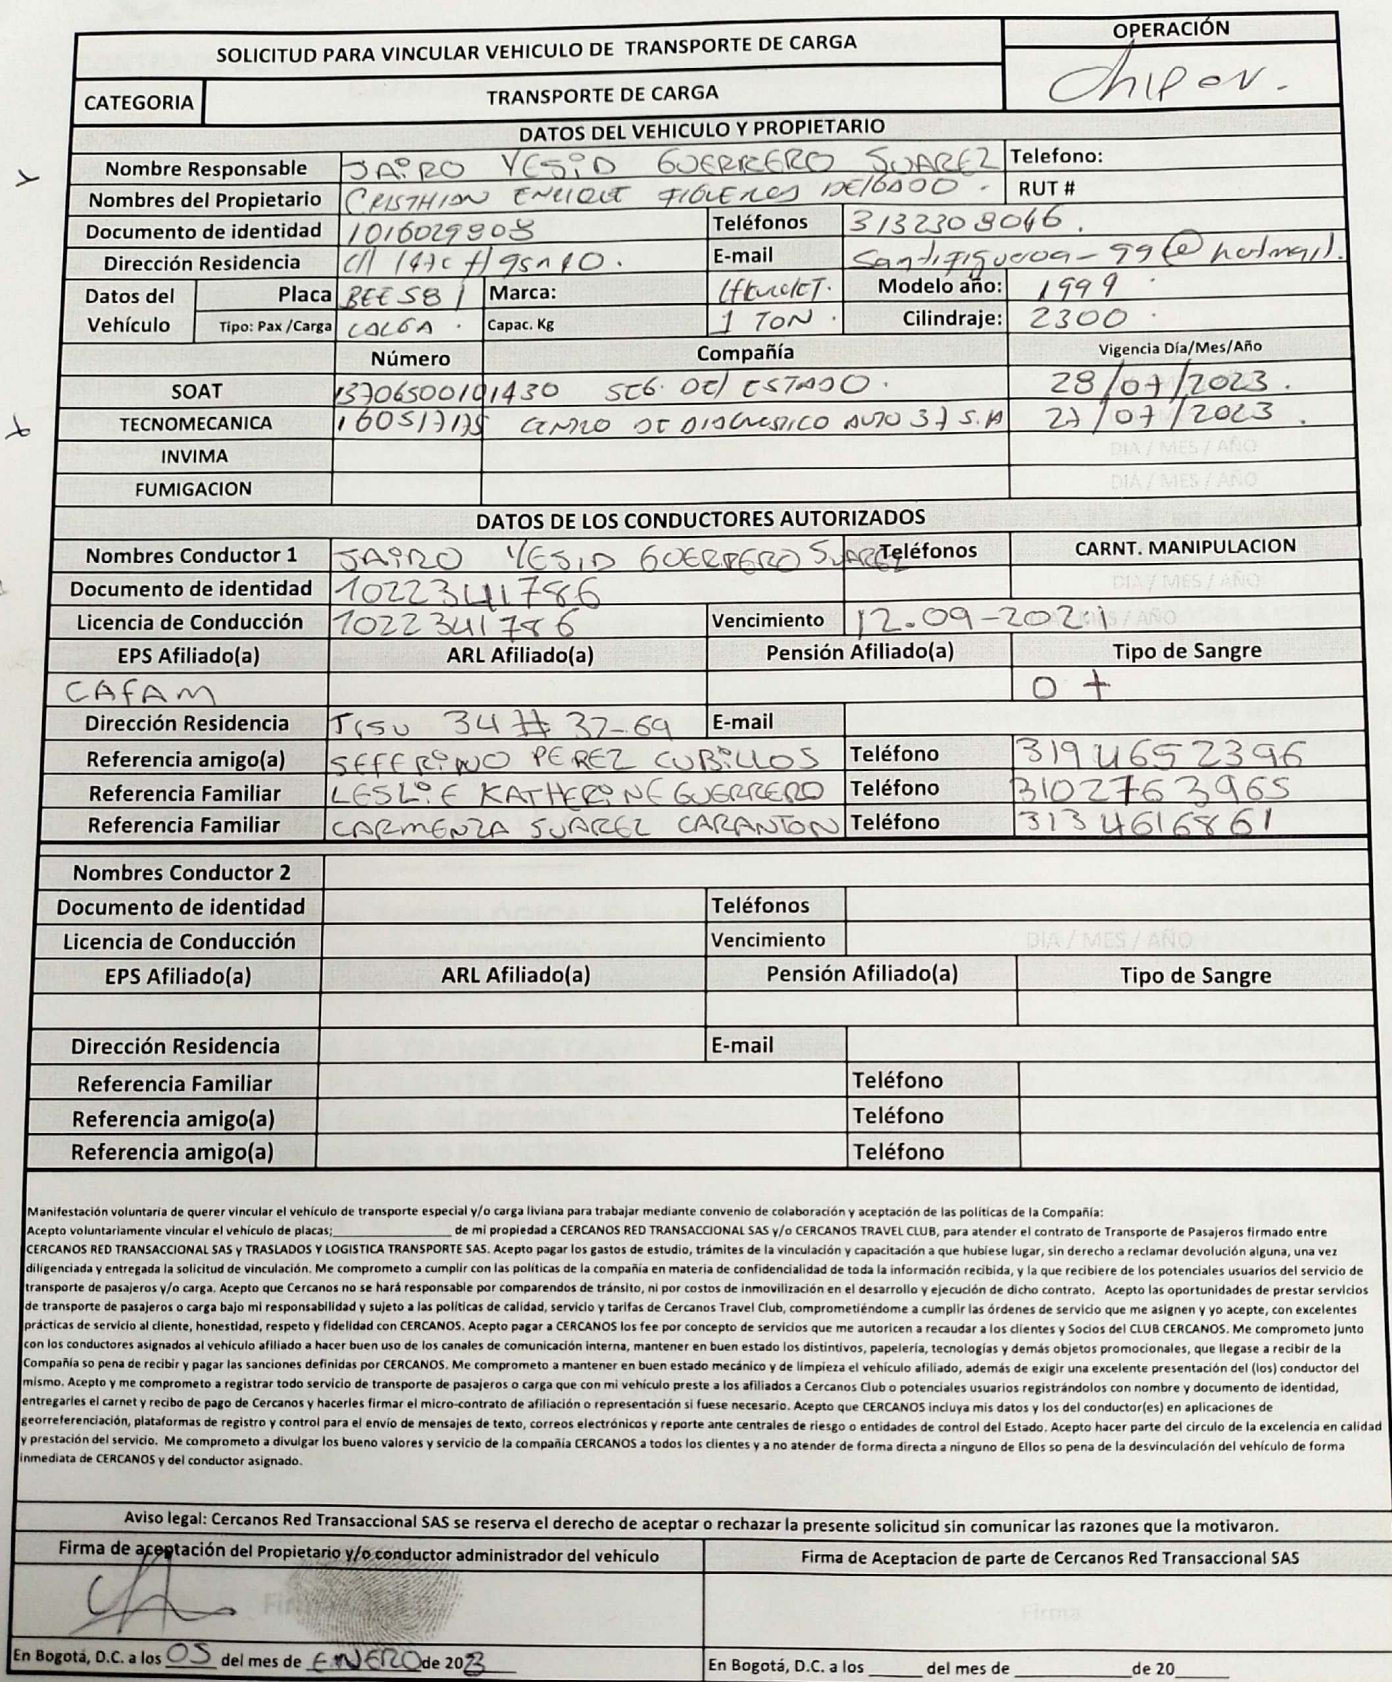 SOLICITUD PARA VINCULAR VEHICULO DE TRANSPORTE DE CARGA
OPERACIÓN
CATEGORIA TRANSPORTE DE CARGA
DATOS DEL VEHICULO Y PROPIETARIO
Nombre Responsable JAIRO YESID GUERRERO SUAREZ Telefono:
Nombres del Propietario CRISTHIAN ENRIQUE RUT #
Documento de identidad 1016029908 Teléfonos 3132308046.
Dirección Residencia E-mail
Datos del Vehículo Placa BEE581 Marca: Modelo año: 1999
Tipo: Pax /Carga CARGA Capac. Kg 1 TON. Cilindraje: 2300
Número Compañía Vigencia Día/Mes/Año
SOAT 13706500101430 SEG. DEL ESTADO. 28/07/2023.
TECNOMECANICA 160517175 CENTRO DE DIAGNOSTICO AUTO 37 S.A 27/07/2023.
INVIMA DIA / MES / AÑO
FUMIGACION DIA / MES / AÑO
DATOS DE LOS CONDUCTORES AUTORIZADOS
Nombres Conductor 1 JAIRO YESID GUERRERO SUAREZ Teléfonos CARNT. MANIPULACION
Documento de identidad 1022341786 DIA / MES / AÑO
Licencia de Conducción 1022341786 Vencimiento 12.09-2024
EPS Afiliado(a) ARL Afiliado(a) Pensión Afiliado(a) Tipo de Sangre
CAFAM O +
Dirección Residencia 34 # 37-69 E-mail
Referencia amigo(a) SEFFERINO PEREZ CUBILLOS Teléfono 3194652396
Referencia Familiar LESLIE KATHERINE GUERRERO Teléfono 3102763965
Referencia Familiar CARMENZA SUAREZ CARANTON Teléfono 3134616861
Nombres Conductor 2
Documento de identidad Teléfonos
Licencia de Conducción Vencimiento DIA / MES / AÑO
EPS Afiliado(a) ARL Afiliado(a) Pensión Afiliado(a) Tipo de Sangre
Dirección Residencia E-mail
Referencia Familiar Teléfono
Referencia amigo(a) Teléfono
Referencia amigo(a) Teléfono
Manifestación voluntaria de querer vincular el vehículo de transporte especial y/o carga liviana para trabajar mediante convenio de colaboración y aceptación de las políticas de la Compañía:
Acepto voluntariamente vincular el vehículo de placas;____________ de mi propiedad a CERCANOS RED TRANSACCIONAL SAS y/o CERCANOS TRAVEL CLUB, para atender el contrato de Transporte de Pasajeros firmado entre
CERCANOS RED TRANSACCIONAL SAS y TRASLADOS Y LOGISTICA TRANSPORTE SAS. Acepto pagar los gastos de estudio, trámites de la vinculación y capacitación a que hubiese lugar, sin derecho a reclamar devolución alguna, una vez
diligenciada y entregada la solicitud de vinculación. Me comprometo a cumplir con las políticas de la compañía en materia de confidencialidad de toda la información recibida, y la que recibiere de los potenciales usuarios del servicio de
transporte de pasajeros y/o carga. Acepto que Cercanos no se hará responsable por comparendos de tránsito, ni por costos de inmovilización en el desarrollo y ejecución de dicho contrato. Acepto las oportunidades de prestar servicios
de transporte de pasajeros o carga bajo mi responsabilidad y sujeto a las políticas de calidad, servicio y tarifas de Cercanos Travel Club, comprometiéndome a cumplir las órdenes de servicio que me asignen y yo acepte, con excelentes
prácticas de servicio al cliente, honestidad, respeto y fidelidad con CERCANOS. Acepto pagar a CERCANOS los fee por concepto de servicios que me autoricen a recaudar a los clientes y Socios del CLUB CERCANOS. Me comprometo junto
con los conductores asignados al vehículo afiliado a hacer buen uso de los canales de comunicación interna, mantener en buen estado los distintivos, papelería, tecnologías y demás objetos promocionales, que llegase a recibir de la
Compañía so pena de recibir y pagar las sanciones definidas por CERCANOS. Me comprometo a mantener en buen estado mecánico y de limpieza el vehículo afiliado, además de exigir una excelente presentación del (los) conductor del
mismo. Acepto y me comprometo a registrar todo servicio de transporte de pasajeros o carga que con mi vehículo preste a los afiliados a Cercanos Club o potenciales usuarios registrándolos con nombre y documento de identidad,
entregarles el carnet y recibo de pago de Cercanos y hacerles firmar el micro-contrato de afiliación o representación si fuese necesario. Acepto que CERCANOS incluya mis datos y los del conductor(es) en aplicaciones de
georreferenciación, plataformas de registro y control para el envío de mensajes de texto, correos electrónicos y reporte ante centrales de riesgo o entidades de control del Estado. Acepto hacer parte del circulo de la excelencia en calidad
y prestación del servicio. Me comprometo a divulgar los bueno valores y servicio de la compañía CERCANOS a todos los clientes y a no atender de forma directa a ninguno de Ellos so pena de la desvinculación del vehículo de forma
inmediata de CERCANOS y del conductor asignado.
Aviso legal: Cercanos Red Transaccional SAS se reserva el derecho de aceptar o rechazar la presente solicitud sin comunicar las razones que la motivaron.
Firma de aceptación del Propietario y/o conductor administrador del vehículo Firma de Aceptacion de parte de Cercanos Red Transaccional SAS
Firma
En Bogotá, D.C. a los 05 del mes de ENERO de 2023 En Bogotá, D.C. a los ______ del mes de __________ de 20______